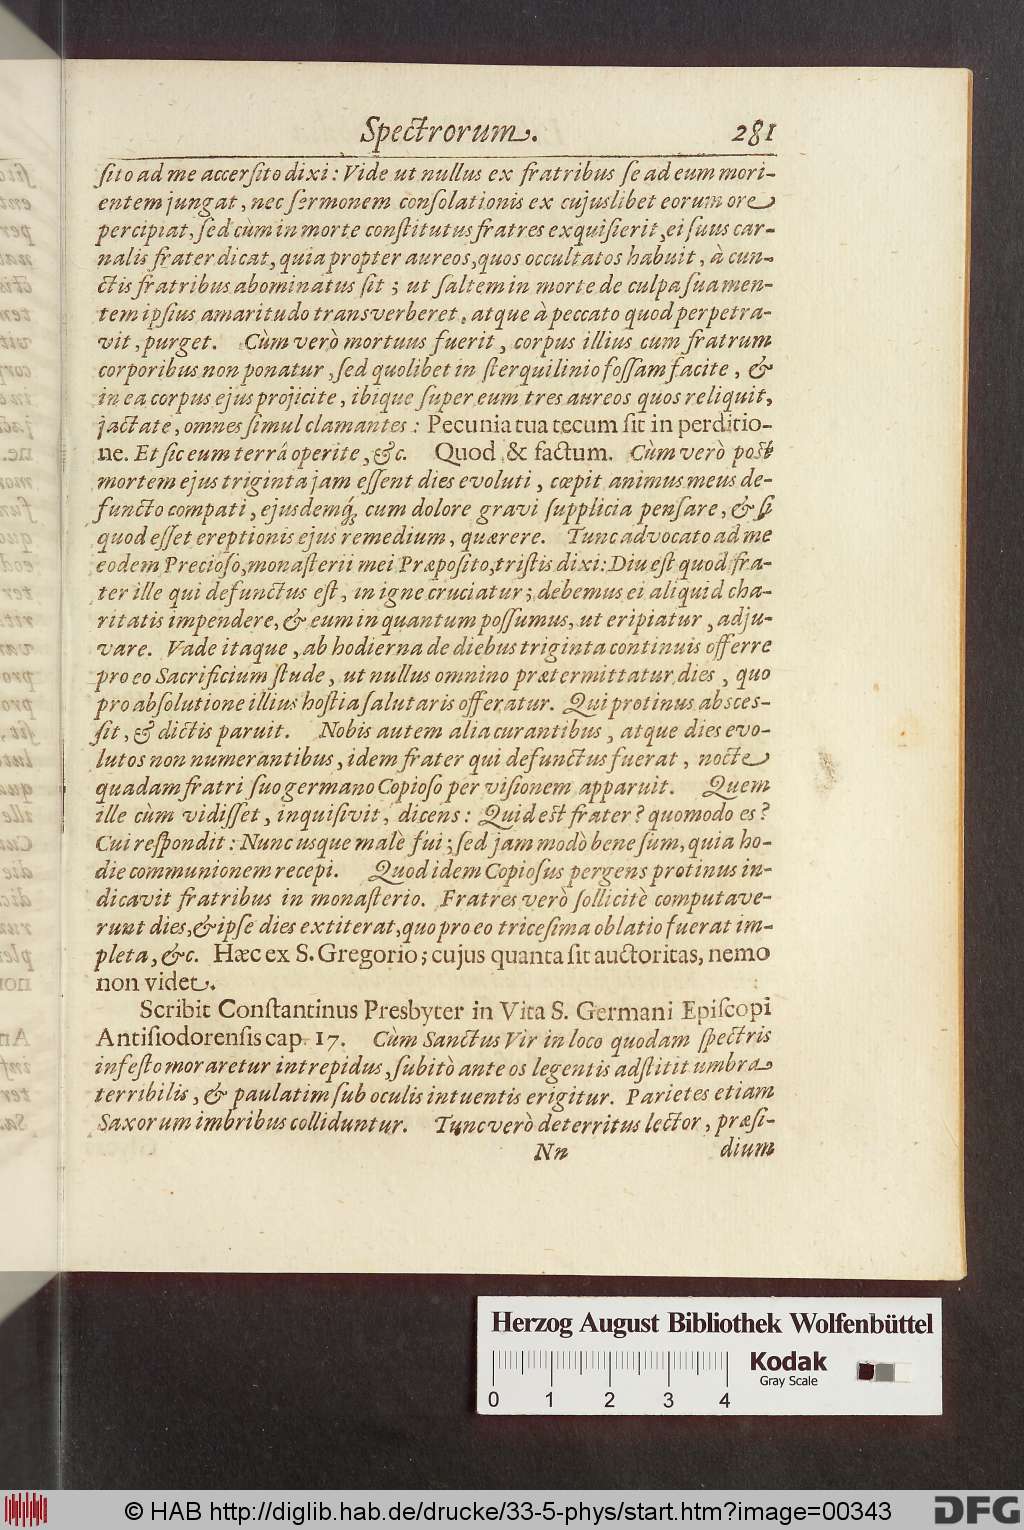 Spectrorum. 281
ſito ad me accerſito dixi: Vide ut nullus ex fratribus ſe ad eum mori-
entem jungat, nec ſermonem conſolationis ex cujuslibet eorum ore
percipiat, ſed cùm in morte conſtitutus fratres exquiſierit, ei ſuus car-
nalis frater dicat, quia propter aureos, quos occultatos habuit, à cun-
ctis fratribus abominatus ſit; ut ſaltem in morte de culpa ſua men-
tem ipſius amaritudo transverberet, atque à peccato quod perpetra-
vit, purget. Cùm verò mortuus fuerit, corpus illius cum fratrum
corporibus non ponatur, ſed quolibet in ſterquilinio foſſam facite, &
in ea corpus ejus projicite, ibique ſuper eum tres aureos quos reliquit,
jactate, omnes ſimul clamantes: Pecunia tua tecum ſit in perditio-
ne. Et ſic eum terrâ operite, &c. Quod & factum. Cùm verò poſt
mortem ejus triginta jam eſſent dies evoluti, cœpit animus meus de-
functo compati, ejusdemq́; cum dolore gravi ſupplicia penſare, & ſi
quod eſſet ereptionis ejus remedium, quærere. Tunc advocato ad me
eodem Precioſo, monaſterii mei Præpoſito, triſtis dixi: Diu eſt quod fra-
ter ille qui defunctus eſt, in igne cruciatur; debemus ei aliquid cha-
ritatis impendere, & eum in quantum poſſumus, ut eripiatur, adju-
vare. Vade itaque, ab hodierna de diebus triginta continuis offerre
pro eo Sacrificium ſtude, ut nullus omnino prætermittatur dies, quo
pro abſolutione illius hoſtia ſalutaris offeratur. Qui protinus absceſ-
ſit, & dictis paruit. Nobis autem alia curantibus, atque dies evo-
lutos non numerantibus, idem frater qui defunctus fuerat, nocte
quadam fratri ſuo germano Copioſo per viſionem apparuit. Quem
ille cùm vidiſſet, inquiſivit, dicens: Quid eſt frater? quomodo es?
Cui reſpondit: Nunc usque malè fui; ſed jam modò bene ſum, quia ho-
die communionem recepi. Quod idem Copioſus pergens protinus in-
dicavit fratribus in monaſterio. Fratres verò ſollicitè computave-
runt dies, & ipſe dies extiterat, quo pro eo triceſima oblatio fuerat im-
pleta, &c. Hæc ex S. Gregorio; cujus quanta ſit auctoritas, nemo
non videt.
Scribit Conſtantinus Presbyter in Vita S. Germani Epiſcopi
Antiſiodorenſis cap. 17. Cùm Sanctus Vir in loco quodam ſpectris
infeſto moraretur intrepidus, ſubitò ante os legentis adſtitit umbra
terribilis, & paulatim ſub oculis intuentis erigitur. Parietes etiam
Saxorum imbribus colliduntur. Tunc verò deterritus lector, præſi-
Nn dium
Herzog August Bibliothek Wolfenbüttel
Kodak
Gray Scale
0 1 2 3 4
© HAB http://diglib.hab.de/drucke/33-5-phys/start.htm?image=00343
DFG